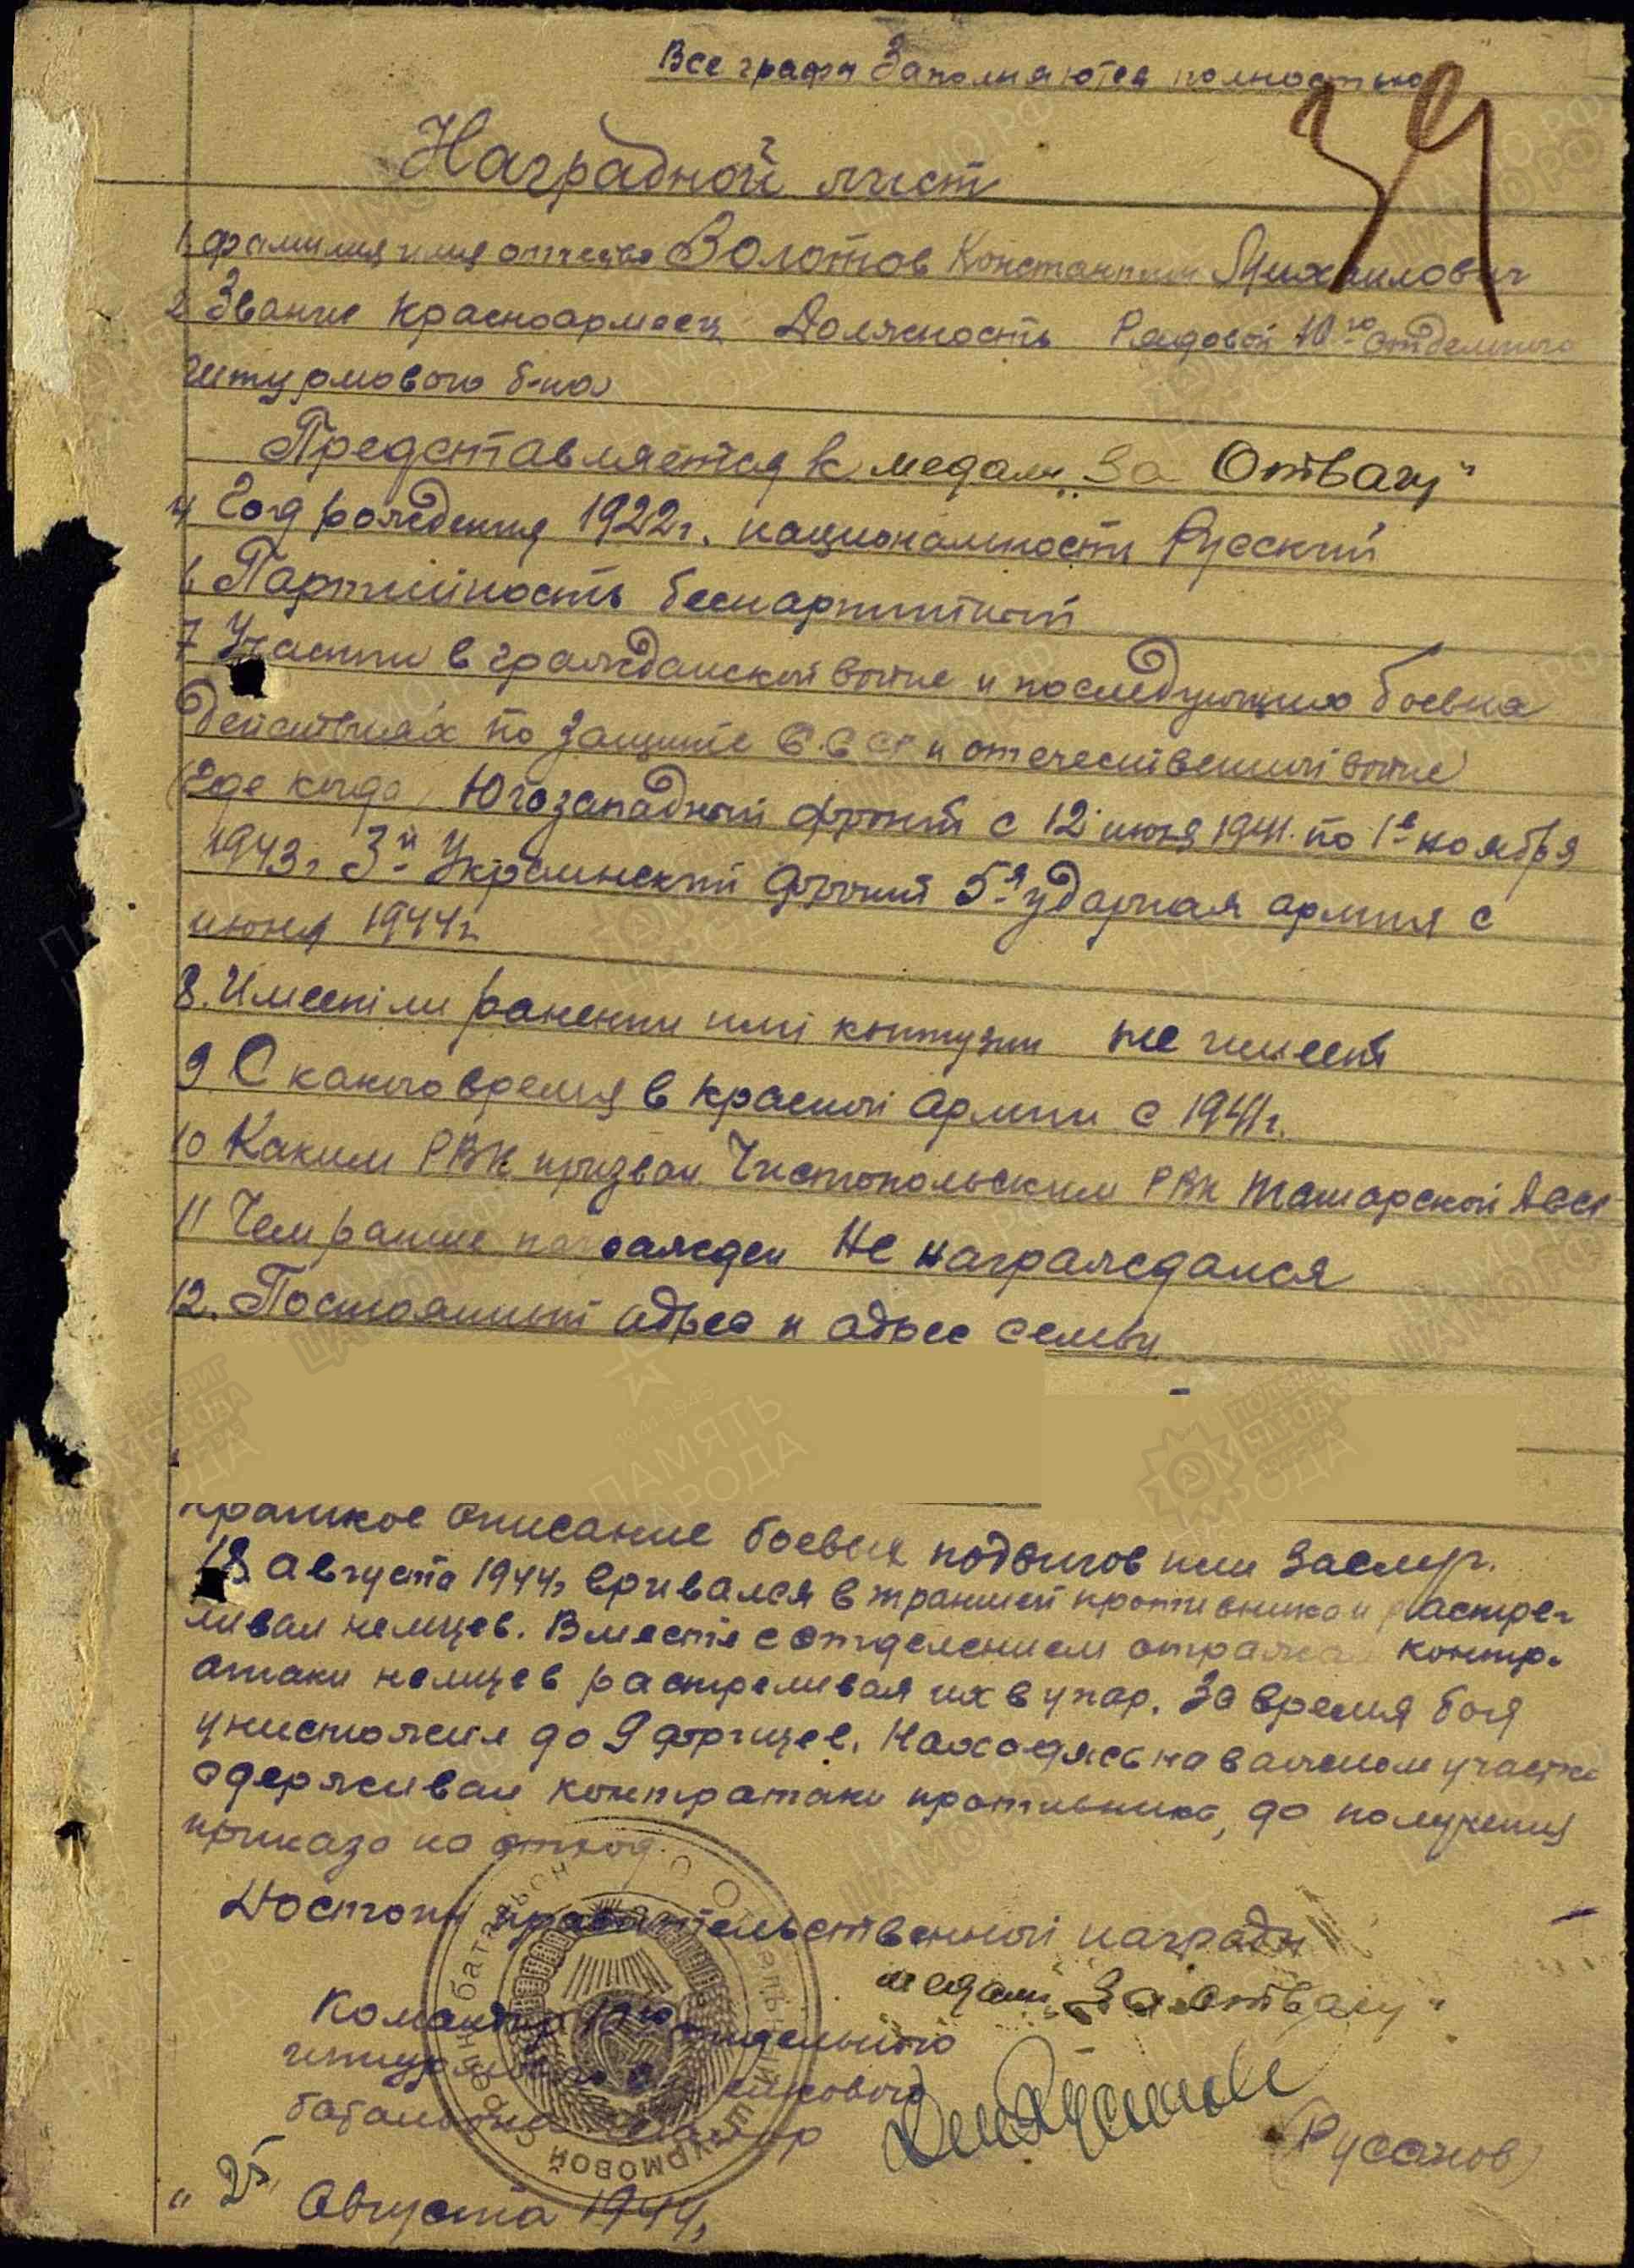 Все графы Заполняются полностью
39
Наградной лист
1. фамилия имя отчество Золотов Константин Михаилович
2 Звание Красноармеец Должность Рядовой 10го отдельного
штурмового б-на
Представляется к медали „За Отвагу"
4 Год рождения 1922г. национальность Русский
6 Партийность беспартийный
7 Участи в гражданской войне и последующих боевых
действиях по защите СССР и отечественной войне
(где когда) Югозападный фронт с 12 июля 1941. по 1е ноября
1943г 3й Украинский фронт 5я ударная армия с
июня 1944г
8. Имеет ли ранения или контузии не имеет
9 С какого время в Красной Армии с 1941г.
10 Каким РВК призван Чистопольским РВК Татарской АССР
11 Чем ранше награжден Не награждался
12. Постоянный адрес и адрес семьи
Краткое описание боевых подвигов или заслуг.
18 августа 1944г врывался в траншеи противника и растрел
ливал немцев. Вместе с отделением отражал контр-
атаки немцев растреливая их в упар. За время боя
унистожил до 9 фрицев. Находясь на важном участке
сдерживал контратаки противника, до получения
приказа на отход.
Достоин правительственной награды
медали „За отвагу"
Командир 10го отдельного
штурмового стрелкового
батальона майор
(Русанов)
„25" Августа 1944г
Отдельный штурмовой стрелковый батальон
ПАМЯТЬ НАРОДА
ПОДВИГ НАРОДА
ЦАМО РФ